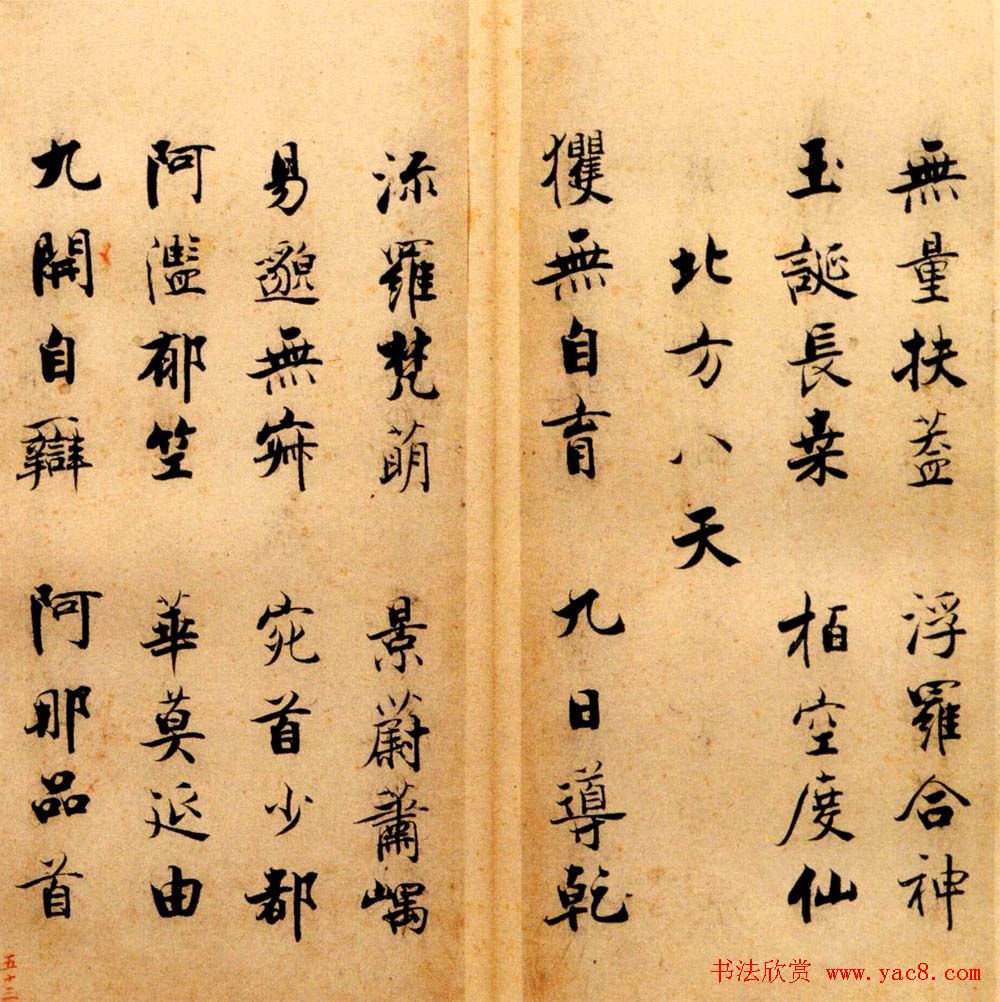 無量扶蓋 浮羅合神
玉誕長桒 柏空度仙
北方八天
玃無自育 九日導乾
流羅梵萌 景蔚蕭嵎
易邈無寂 宛首少都
阿濫郁竺 華莫延由
九開自辯 阿那品首
书法欣赏 www.yac8.com